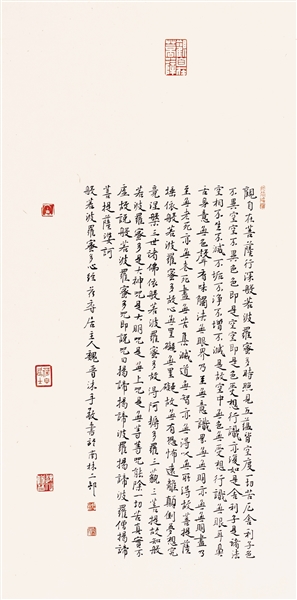 觀自在菩薩行深般若波羅蜜多時照見五蘊皆空度一切苦厄舍利子色
不異空空不異色色即是空空即是色受想行識亦復如是舍利子是諸法
空相不生不滅不垢不淨不增不減是故空中無色無受想行識無眼耳鼻
舌身意無色聲香味觸法無眼界乃至無意識界無無明亦無無明盡乃
至無老死亦無老死盡無苦集滅道無智亦無得以無所得故菩提薩
埵依般若波羅蜜多故心無罣礙無罣礙故無有恐怖遠離顛倒夢想究
竟涅槃三世諸佛依般若波羅蜜多故得阿耨多羅三藐三菩提故知般
若波羅蜜多是大神呪是大明呪是無上呪是無等等呪能除一切苦真實不
虛故說般若波羅蜜多呪即說呪曰揭諦揭諦波羅揭諦波羅僧揭諦
菩提薩婆訶
般若波羅蜜多心經 居主人 敬書於南林二邨